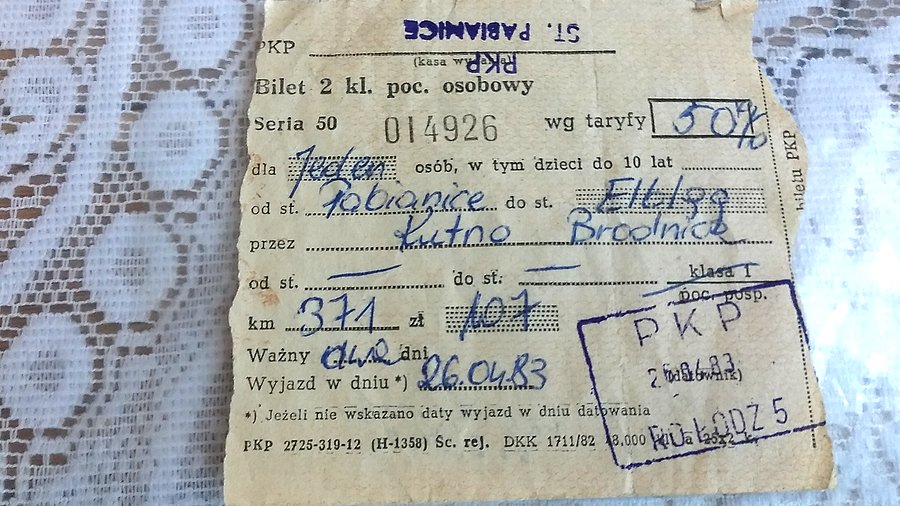 ST. PABIANICE
PKP
PKP
(kasa wydania)
Bilet 2 kl. poc. osobowy
Seria 50 014926 wg taryfy 50%
dla Jeden osób, w tym dzieci do 10 lat
od st. Pabianice do st. Elbląg
przez Kutno Brodnica
od st. — do st. — klasa 1
poc. posp.
km 371 zł 107
Ważny dwa dni
Wyjazd w dniu *) 26.04.83
*) Jeżeli nie wskazano daty wyjazd w dniu datowania
PKP 2725-319-12 (H-1358) Śc. rej. DKK 1711/82
PKP
26.04.83
(datownik)
ŁÓDZ 5
biletu PKP